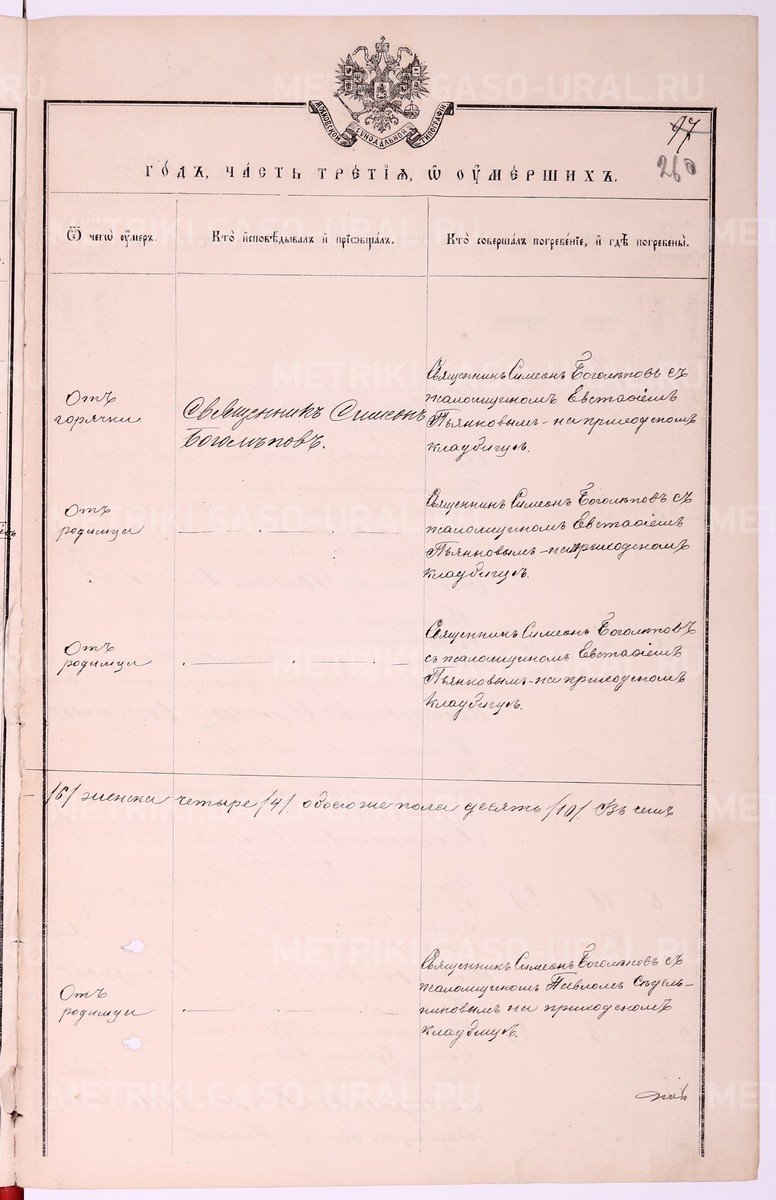 МОСКОВСКОЙ СѴНОДАЛЬНОЙ ТИПОГРАФІИ
97
260
ГО́ДЪ, ЧА́СТЬ ТРЕ́ТІѦ, Ѡ ОУМЕ́РШИХЪ.
Ѿ чегѡ̀ оу́меръ.
Кто̀ и҆сповѣ́дывалъ и҆ прїѡбща́лъ.
Кто̀ соверша́лъ погребе́нїе, и҆ гдѣ̀ погребены̀.
Отъ
горячки.
Священникъ Симеонъ
Боголѣповъ.
Священникъ Симеонъ Боголѣповъ съ
псаломщикомъ Евстафіемъ
Пьянковымъ - на приходскомъ
кладбищѣ.
Отъ
родимца
Священникъ Симеонъ Боголѣповъ съ
псаломщикомъ Евстафіемъ
Пьянковымъ - на приходскомъ
кладбищѣ.
Отъ
родимца
Священникъ Симеонъ Боголѣповъ
съ псаломщикомъ Евстафіемъ
Пьянковымъ - на приходскомъ
кладбищѣ.
/6/ женска четыре /4/ обоего же пола десять /10/. Въ семъ
Отъ
родимца
Священникъ Симеонъ Боголѣповъ съ
псаломщикомъ Павломъ Сѣдель-
никовымъ на приходскомъ
кладбищѣ.
METRIKI.GASO-URAL.RU